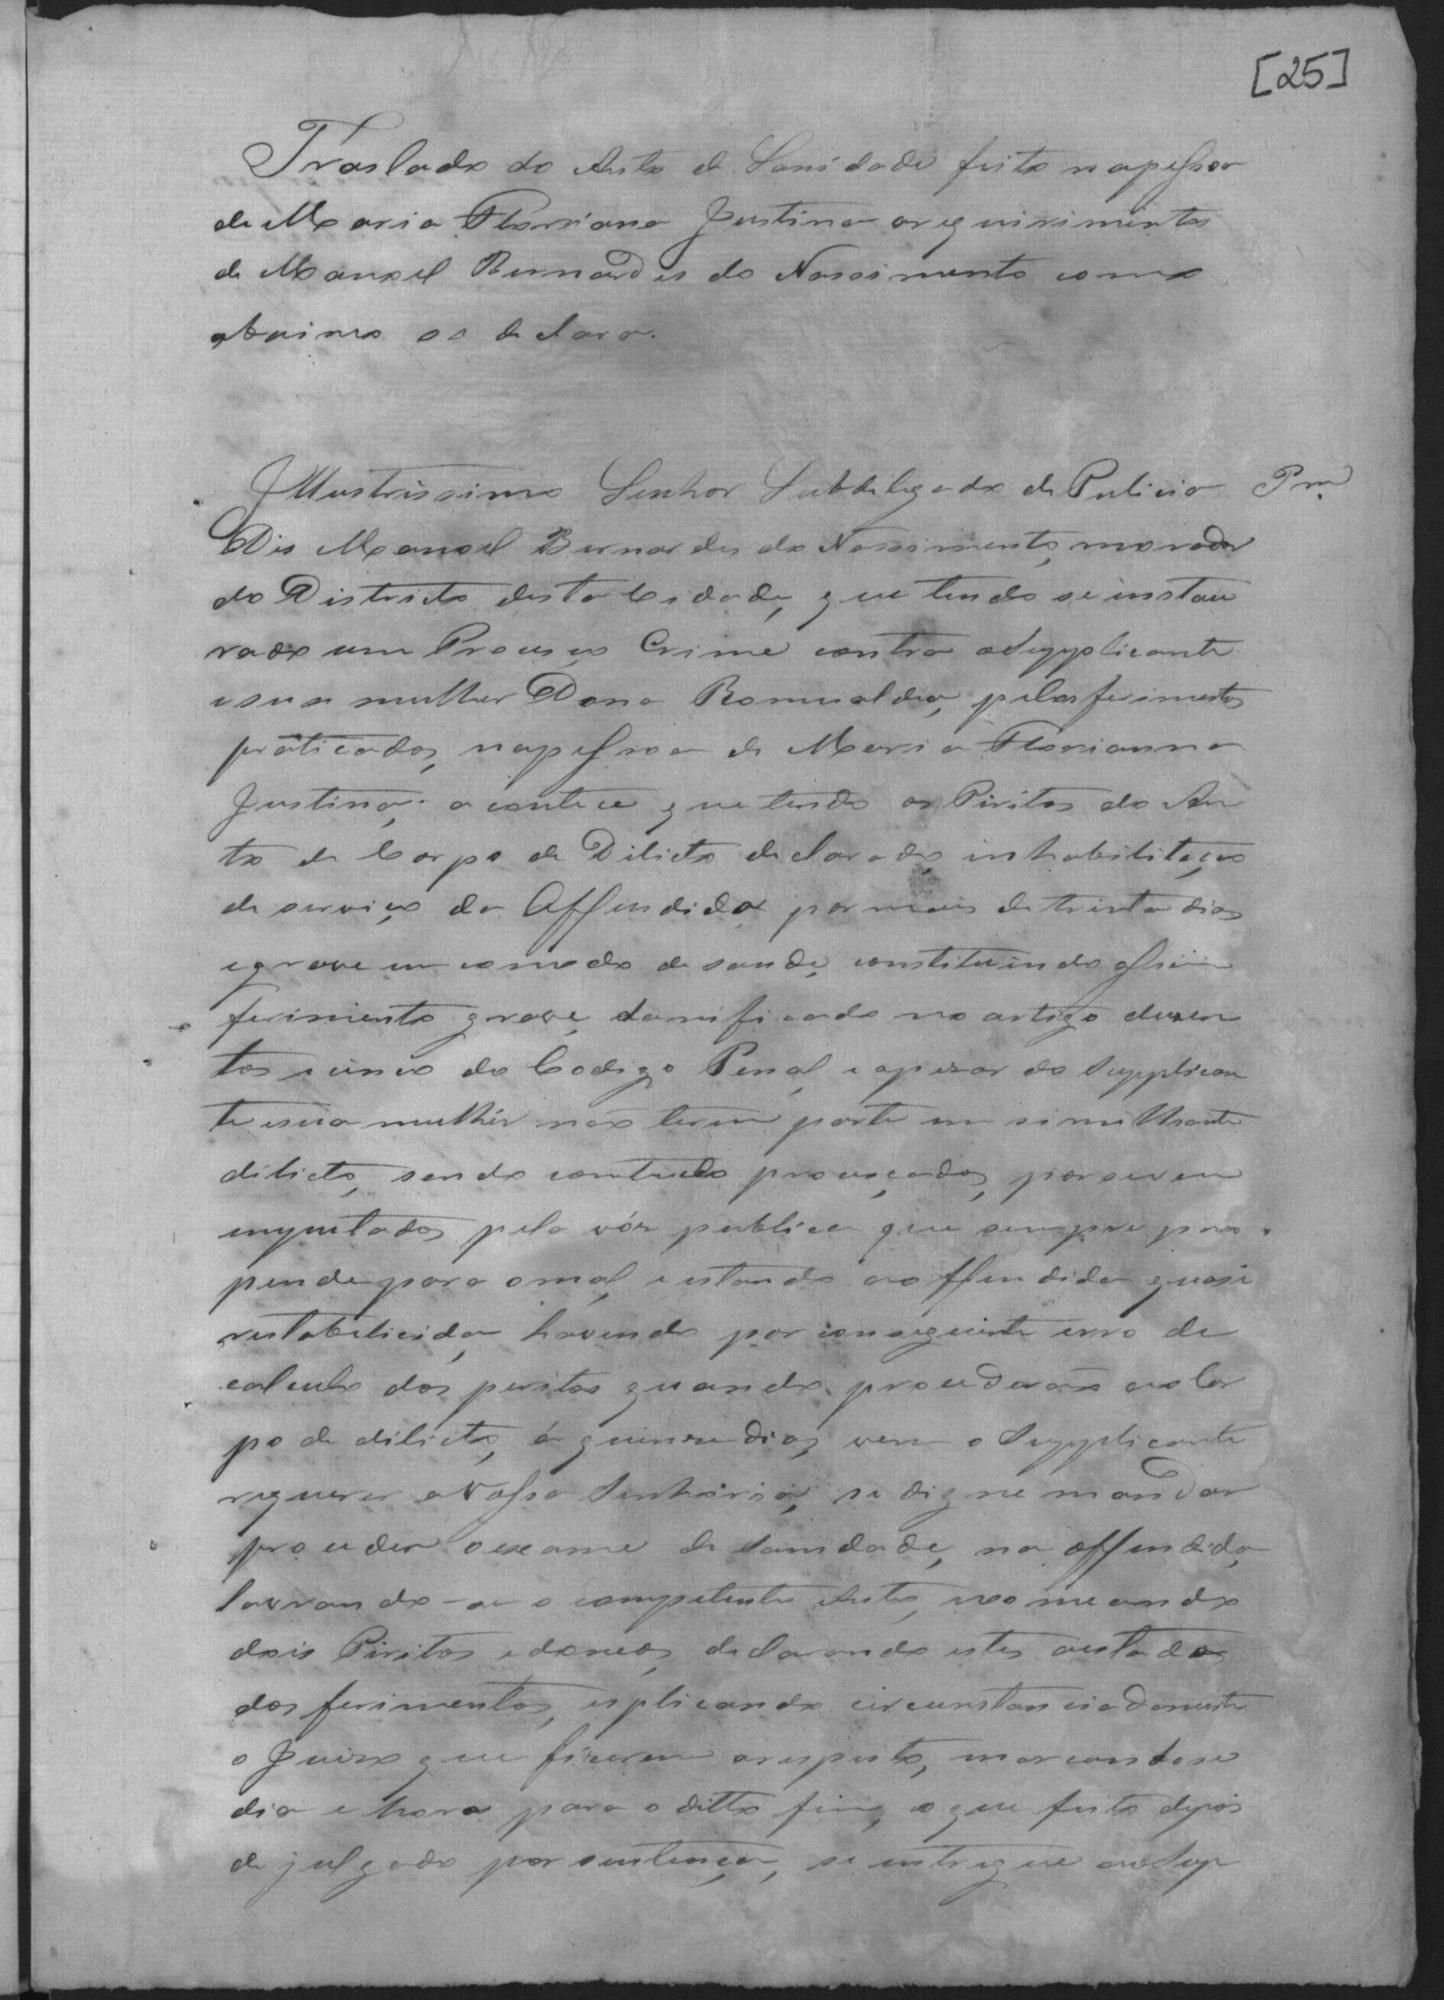 [25]
Traslado do Auto de Sanidade feito na pessoa
de Maria Floriana Justina a requirimento
de Manoel Bernardes do Nascimento como
abaixo se declara.
Illustrissimo Senhor Subdelegado de Policia Pm
Diz Manoel Bernardes do Nascimento, morador
do Districto desta Cidade, que tendo se instau
rado um Processo Crime contra o Supplicante
e sua mulher Dona Romualda, pelos ferimentos
praticados, na pessoa de Maria Florianna
Justina; acontece que tendo os Piritos do Au
to de Corpo de Dilicto declarado, inhabilitação
de serviço da Affendida por mais de trinta dias
e grave incomodo de saude, constituindo assim
ferimento grave, clasificado no artigo duzen
tos e cinco do Codigo Penal, e apezar do Supplican
te e sua mulhér não terem parte em similhante
dilicto, sendo contudo processados, por serem
imputados pela vóz publica que sempre pro
pende para o mal, e estando a offendida quasi
restabelicida, havendo por conseguinte erro de
calculo dos peritos quando procederão ao Cor
po de dilicto, á quinze dias, vem o Supplicante
riquerer a Vossa Senhoria, se digne mandar
proceder o exame de Sanidade, na offendida,
lavrando-se o competente Auto, nomeando
dois Piritos idoneos, declarando estes o estado
dos ferimentos, esplicando circunstanciadamente
o Juizo que fizerem a respeito, marcandose
dia e hora para o ditto fim, o que feito depois
de julgado por sentença, se entregue ao Sup